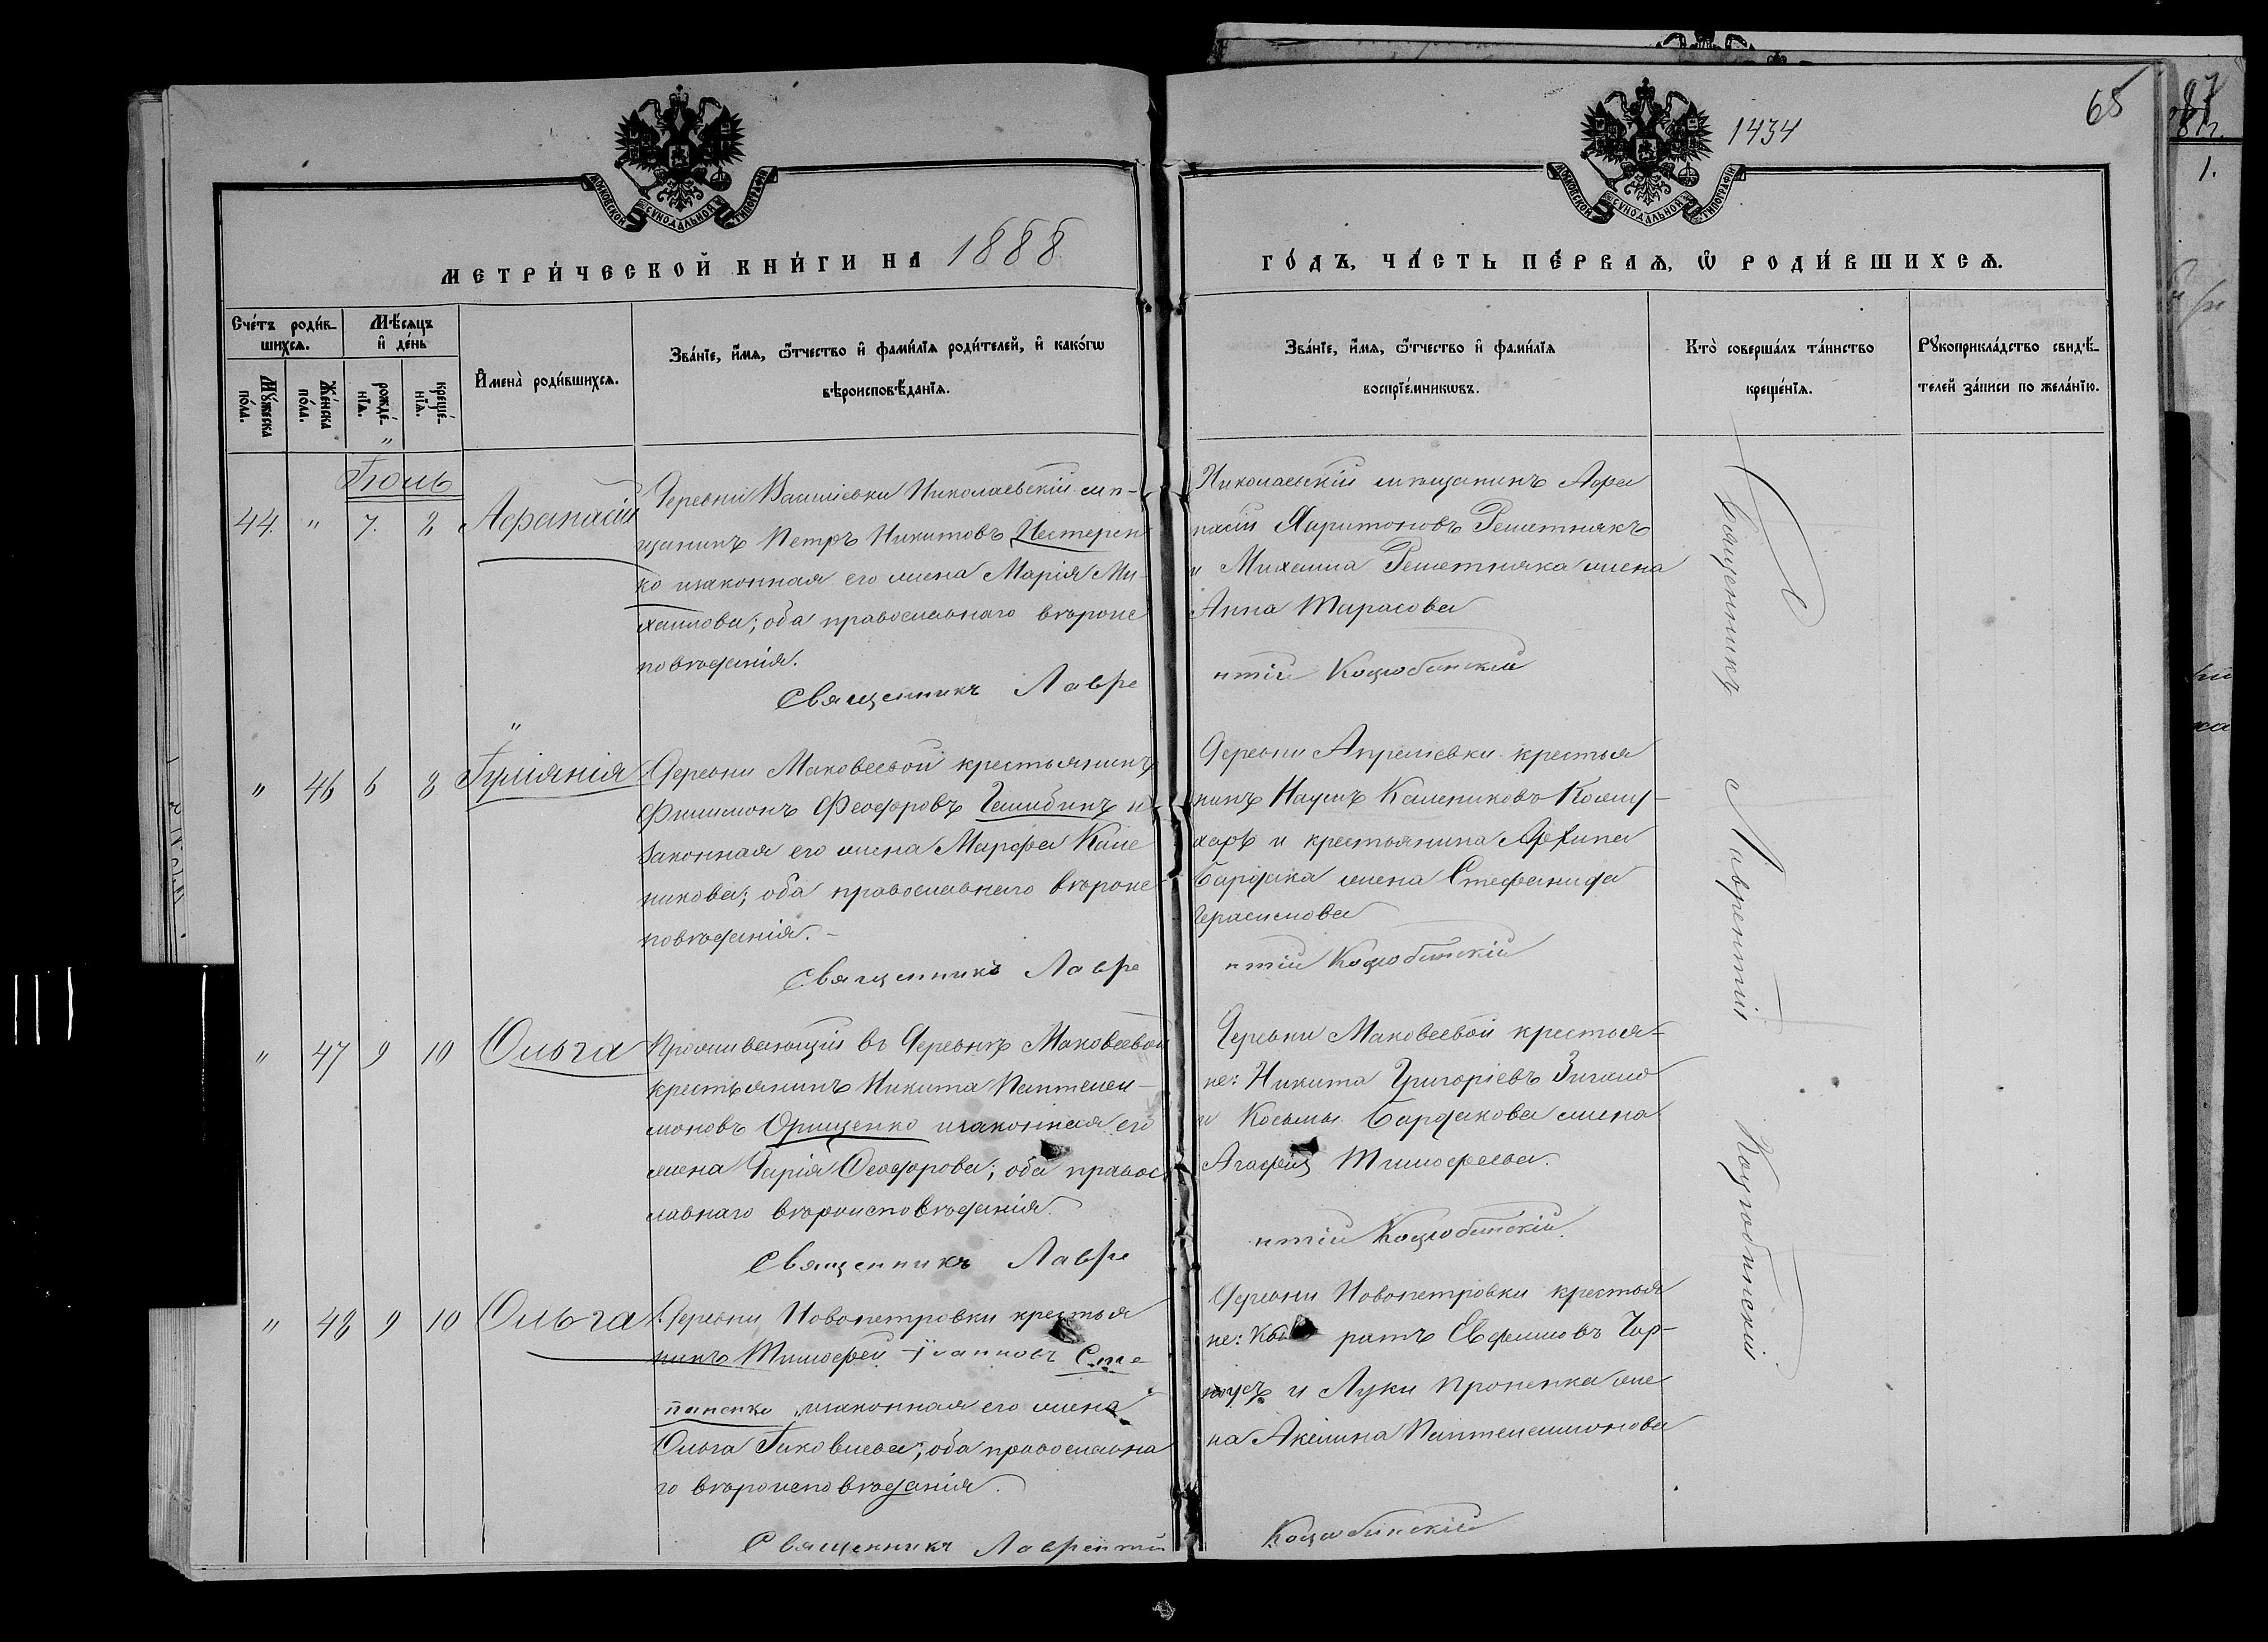 65
1434
МОСКОВСКОЙ СѴНОДАЛЬНОЙ ТИПОГРАФІИ
МОСКОВСКОЙ СѴНОДАЛЬНОЙ ТИПОГРАФІИ
МЕТРИ́ЧЕСКОЙ КНИ́ГИ НА 1888
ГО́ДЪ, ЧА́СТЬ ПЕ́РВАѦ, Ѽ РОДИ́ВШИХСѦ.
Сче́тъ роди́в-
шихсѧ.
Мꙋ́жеска
по́ла.
Же́нска
по́ла.
Мѣ́сѧцъ
и҆ де́нь
рожде́-
нїѧ.
креще́-
нїѧ.
И҆мена̀ роди́вшихсѧ.
Зва́нїе, и҆́мѧ, ѻ҆́тчество и҆ фами́лїѧ роди́телей, и҆ како́гѡ
вѣроисповѣ́данїѧ.
Зва́нїе, и҆́мѧ, ѻ҆́тчество и҆ фами́лїѧ
воспрїе́мникѡвъ.
Кто̀ соверша́лъ та́инство
креще́нїѧ.
Рꙋкоприкла́дство свидѣ́-
телей за́писи по жела́нїю.
Іюль
44. " 7. 8 Афанасій
Деревни Николаевскій мѣ-
щанинъ Петръ Никитовъ Нестерен
ко и законная его жена Марія Ми-
хаилова; оба православнаго вѣроис
повѣданія.
Священникъ Лавре
Николаевскій мѣщанинъ Афа
насій Харитоновъ Решетнякъ
и Михаила Решетняка жена
Анна Тарасова
нтій Коцюбинскій
" 46 6 8 Іуліанія
Деревни Маковеевой крестьянинъ
Филимонъ Феодоровъ и
законная его жена Марфа Кале
никова; оба православнаго вѣроис
повѣданія.-
Священникъ Лавре
Деревни Апрелевки крестья
нинъ Наумъ Калениковъ Кожу-
харь и крестьянина Архипа
Бардака жена Стефанида
Герасимова
нтій Коцюбинскій
" 47 9 10 Ольга
Проживающій въ Деревнѣ Маковеевой
крестьянинъ Никита Пантелеи-
моновъ Орищенко и законная его
жена Дарія Феодорова; оба правос
лавнаго вѣроисповѣданія.
Священникъ Лавре
Деревни Маковеевой крестья-
не: Никита Григоріевъ
и Косьмы Бардакова жена
Агафія Тимофеева.
нтій Коцюбинскій.
" 48 9 10 Ольга
Деревни Новопетровки крестья
нинъ Тимофей Іоанновъ Сте
паненко и законная его жена
Ольга Іаковлева; оба православна
го вѣроисповѣданія.
Священникъ Лаврентій
Деревни Новопетровки крестья
не: ратъ Евфимовъ Чор-
ноусъ и Луки Проненка же
на Акилина Пантелеимонова
Коцюбинскій
Священникъ Лаврентій Коцюбинскій